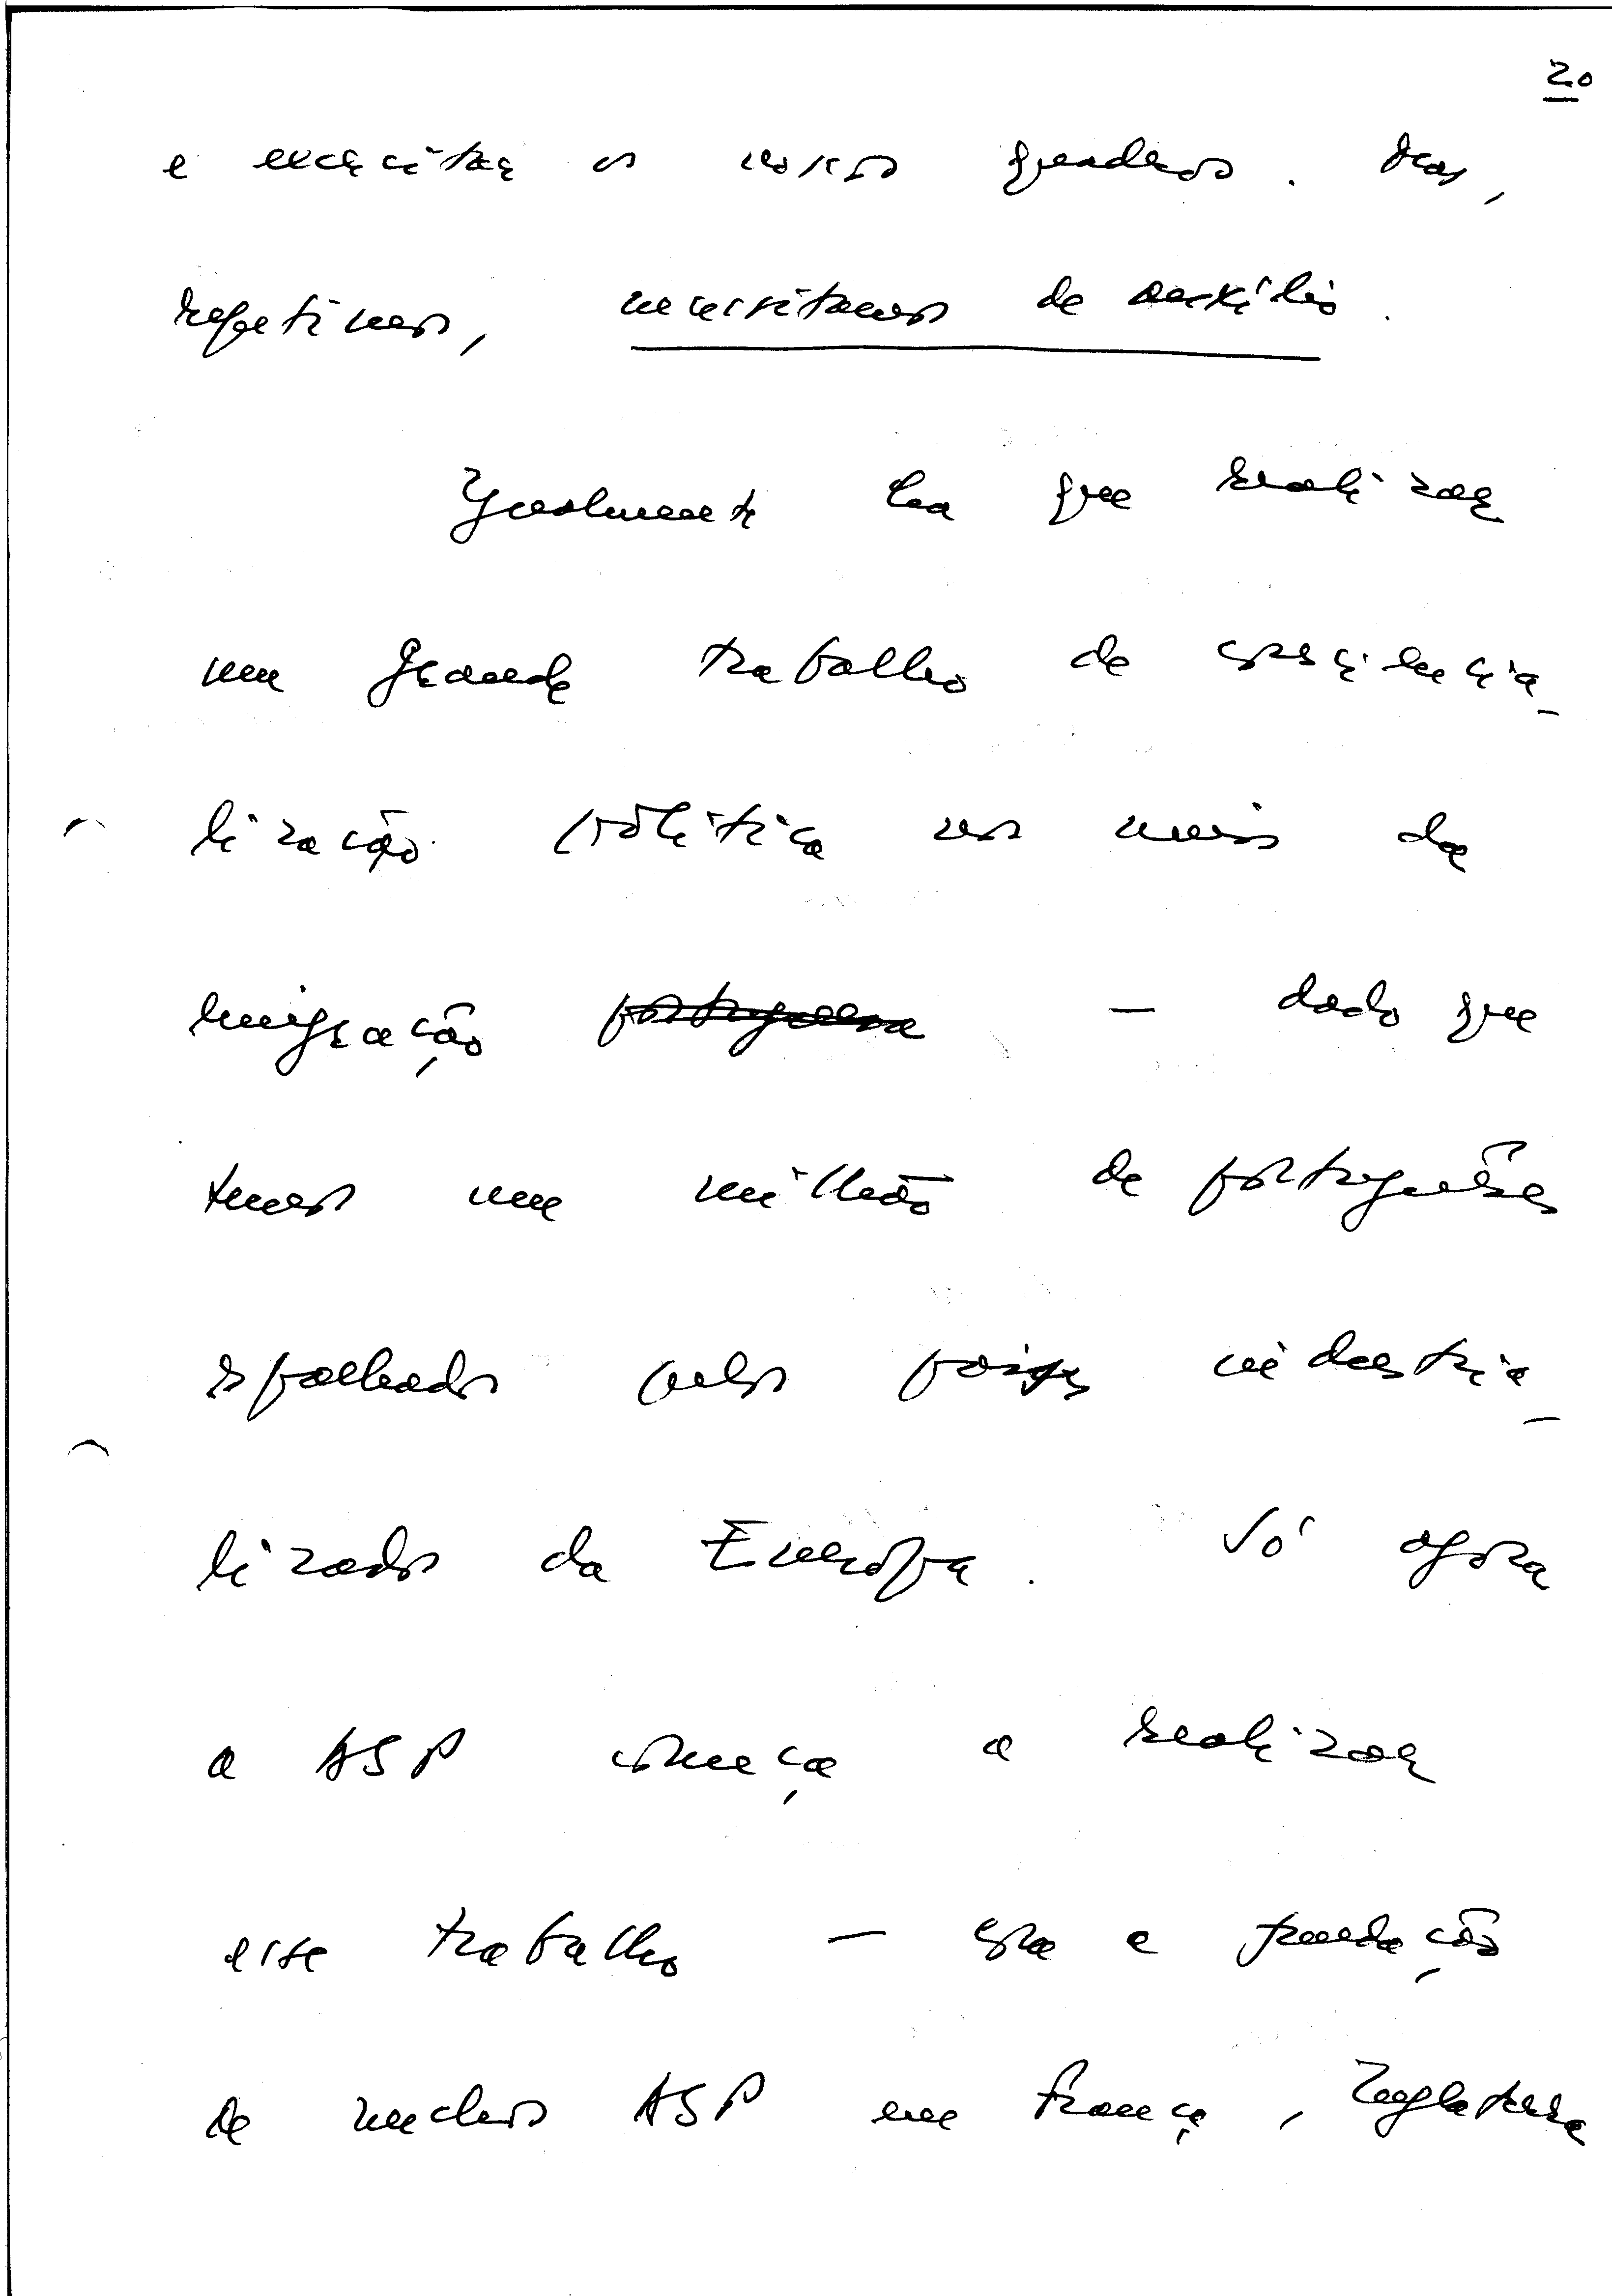 20
e exercitar os nossos quadros. Mas,
repetimos, necessitamos de auxílio.
Igualmente há que realizar
um grande trabalho de consciencia-
lização política no meio da
emigração portuguesa — dado que
temos um milhão de portugueses
espalhados pelos países industria-
lizados da Europa. Só agora
a ASP começa a realizar
esse trabalho — com a fundação
de nucleos ASP em França, Inglaterra